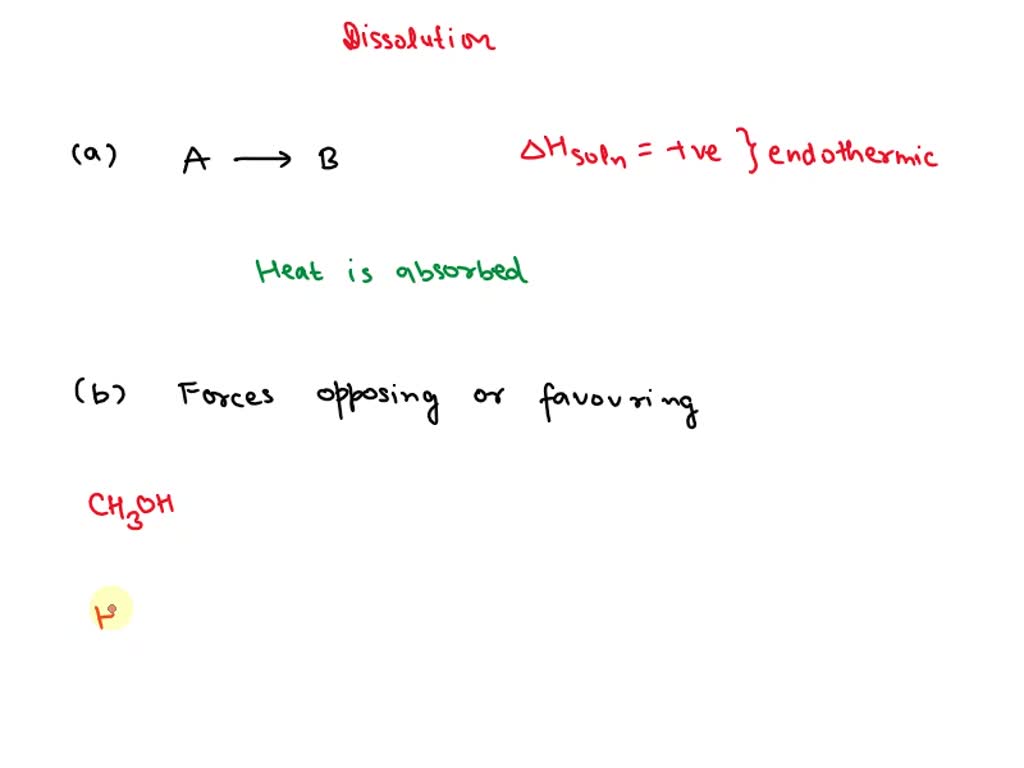 Dissolution
(a) A ⟶ B ΔHsoln = +ve } endothermic
Heat is absorbed
(b) Forces opposing or favouring
CH₃OH
H